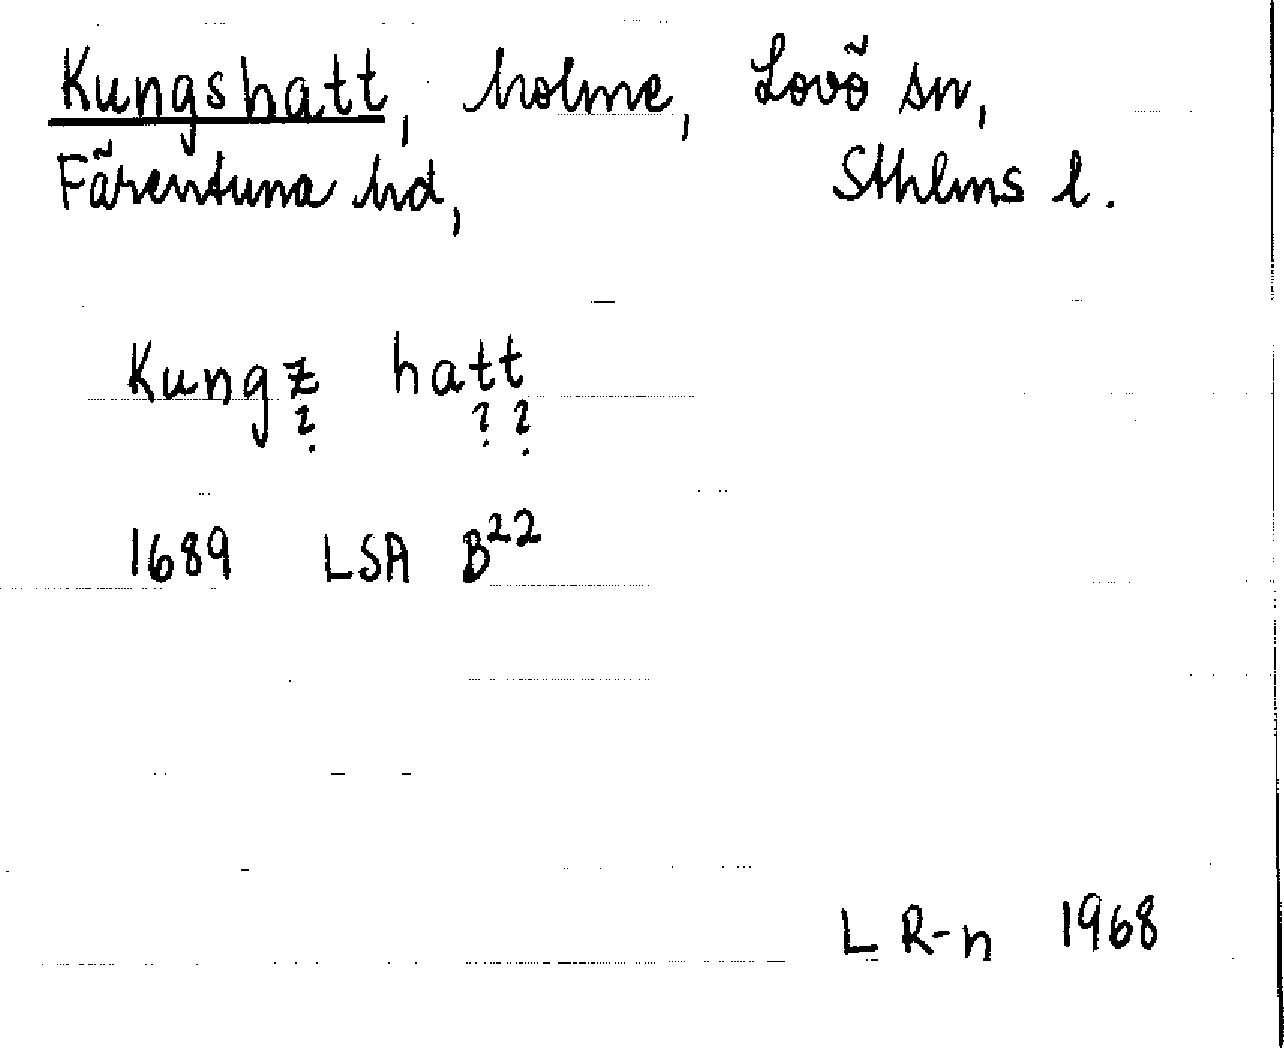 Kungshatt, holme, Lovö sn,
Färentuna hd, Sthlms l.
Kungz hatt
? ? ?
1689 LSA B²²
L R-n 1968